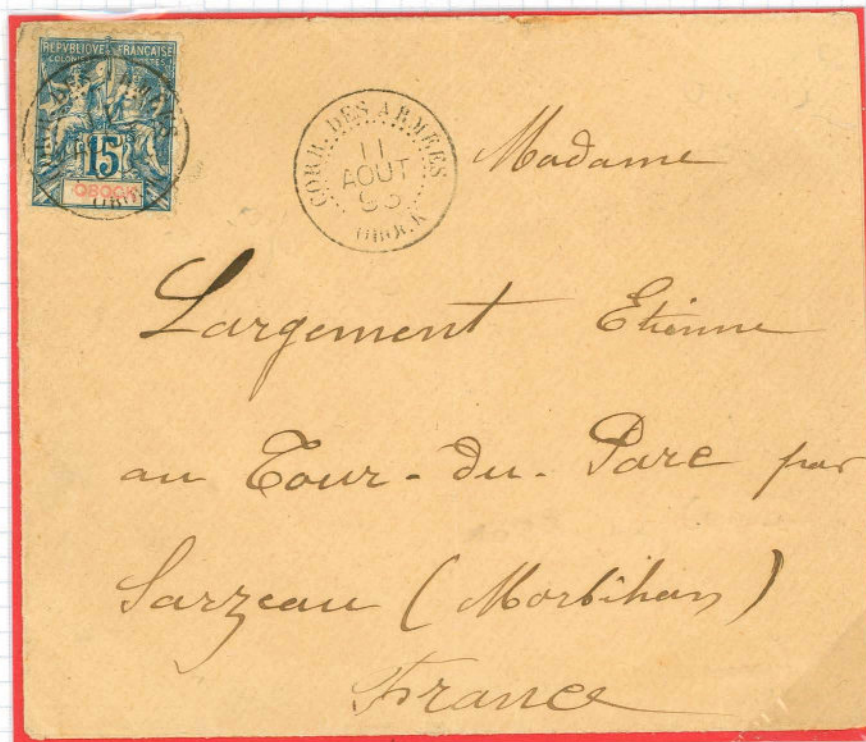 REPVBLIQVE FRANÇAISE
COLONIES POSTES
15
OBOCK
CORR. DES ARMEES
11
AOUT
93
OBOCK
Madame
Largement Etienne
au Tour-du-Parc par
Sarzeau (Morbihan)
France